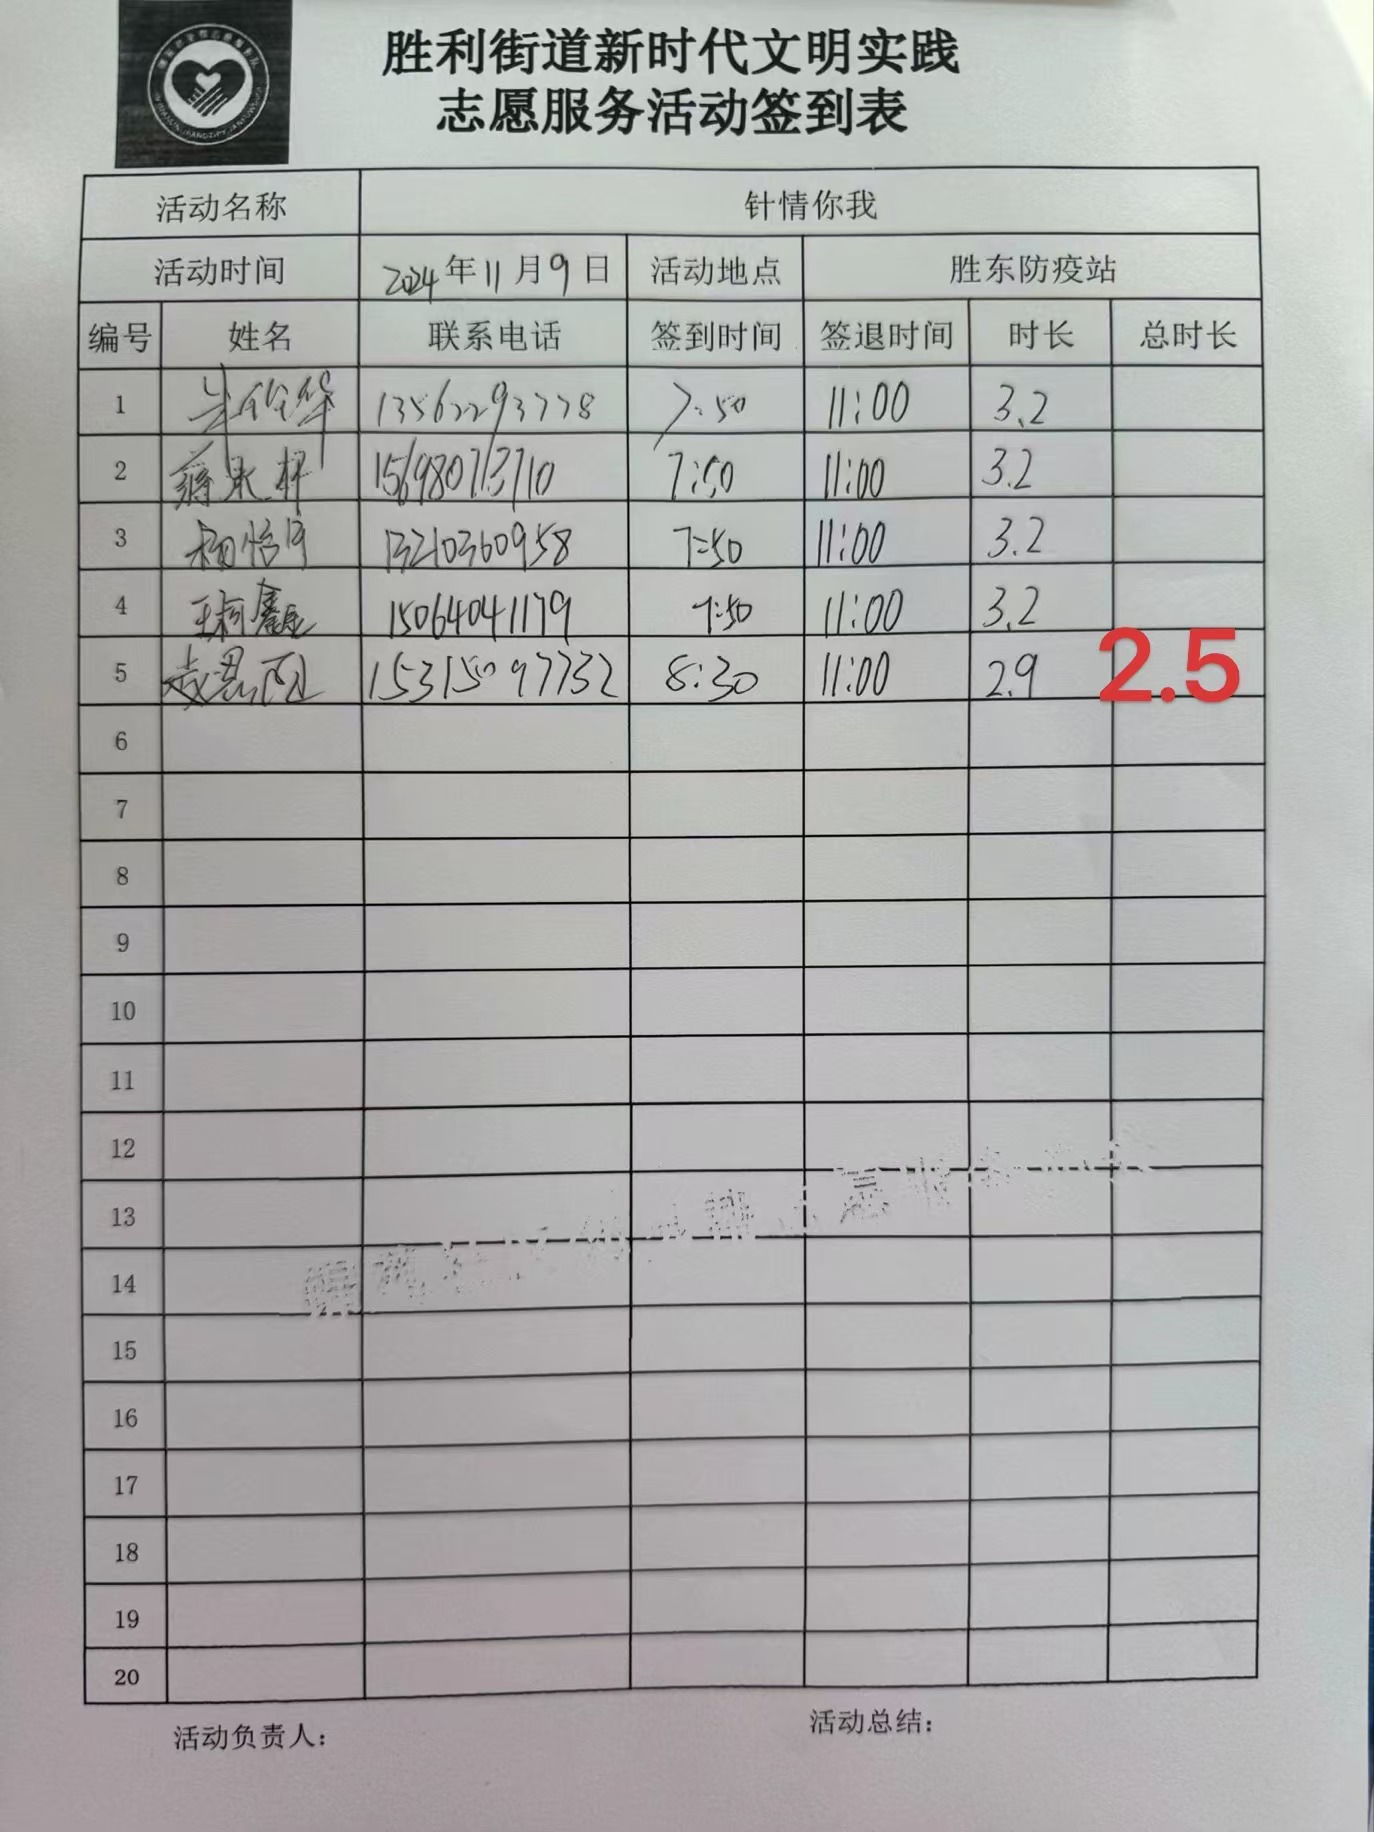 胜利街道新时代文明实践
志愿服务活动签到表
活动名称 针情你我
活动时间 2024年11月9日 活动地点 胜东防疫站
编号 姓名 联系电话 签到时间 签退时间 时长 总时长
1 13562293778 7:50 11:00 3.2
2 156980713710 7:50 11:00 3.2
3 13210360958 7:50 11:00 3.2
4 王柯鑫 15064041179 7:50 11:00 3.2
5 15315097732 8:30 11:00 2.9 2.5
6
7
8
9
10
11
12
13
14
15
16
17
18
19
20
活动负责人: 活动总结: